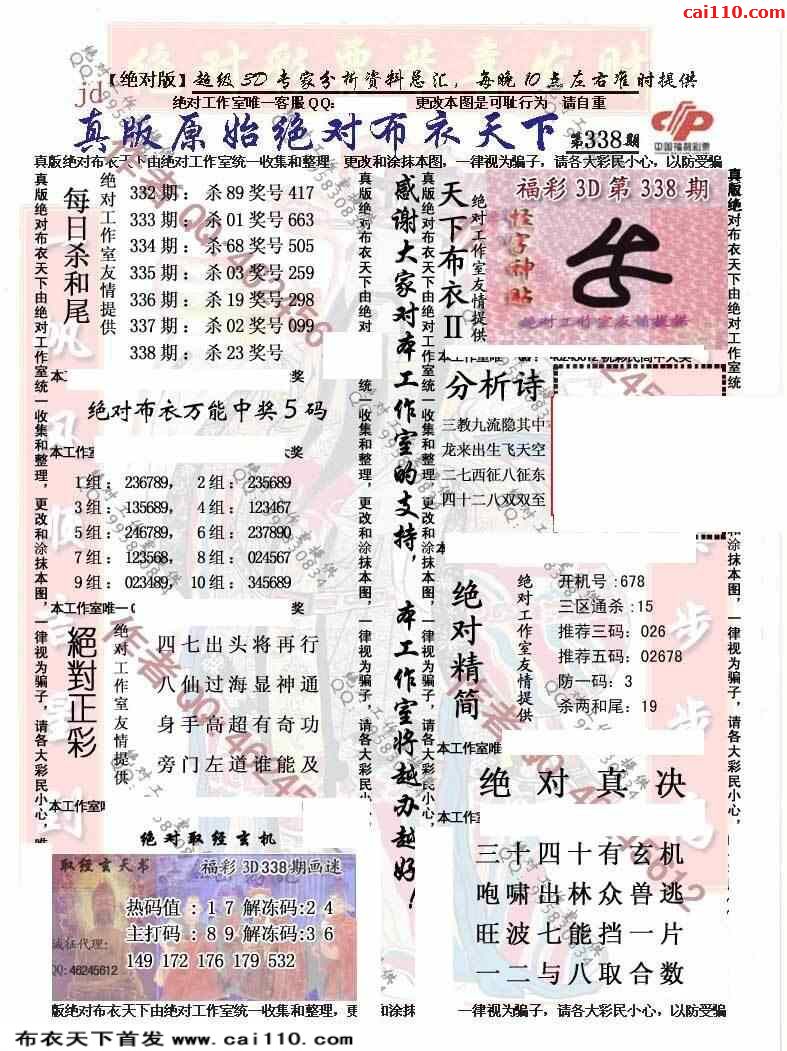 cai110.com
【绝对版】超级3D专家分析资料总汇，每晚10点左右准时提供
jd
绝对工作室唯一客服QQ: 更改本图是可耻行为 请自重
真版原始绝对布衣天下 第338期
中国福利彩票
真版绝对布衣天下由绝对工作室统一收集和整理 更改和涂抹本图，一律视为骗子，请各大彩民小心，以防受骗
每日杀和尾
绝对工作室友情提供
332期：杀89奖号417
333期：杀01奖号663
334期：杀68奖号505
335期：杀03奖号259
336期：杀19奖号298
337期：杀02奖号099
338期：杀23奖号
绝对布衣万能中奖5码
1组：236789， 2组：235689
3组：135689， 4组：123467
5组：246789， 6组：237890
7组：123568， 8组：024567
9组：023489， 10组：345689
本工作室唯一
奖
絕對正彩
绝对工作室友情提供
四七出头将再行
八仙过海显神通
身手高超有奇功
旁门左道谁能及
绝对取经玄机
取经玄天书 福彩3D338期画迷
热码值：17解冻码:24
主打码：89解冻码:36
149 172 176 179 532
诚征代理:
QQ: 46245612
感谢大家对本工作室的支持，本工作室将越办越好！
天下布衣II
绝对工作室友情提供
福彩3D第338期
怪字神贴
绝对工作室友情提供
分析诗
三教九流隐其中
龙来出生飞天空
二七西征八征东
四十二八双双至
绝对精简
绝对工作室友情提供
开机号:678
三区通杀:15
推荐三码：026
推荐五码：02678
防一码：3
杀两和尾：19
本工作室唯
绝对真决
三十四十有玄机
咆啸出林众兽逃
旺波七能挡一片
一二与八取合数
真版绝对布衣天下由绝对工作室统一收集和整理，更改和涂抹本图，一律视为骗子，请各大彩民小心，
版绝对布衣天下由绝对工作室统一收集和整理，更 和涂抹 一律视为骗子，请各大彩民小心，以防受骗
布衣天下首发 www.cai110.com